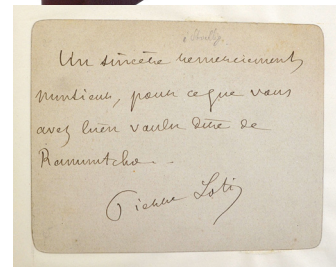 Un sincère remerciement,
monsieur, pour ce que vous
avez bien voulu dire de
Ramuntcho.
Pierre Loti